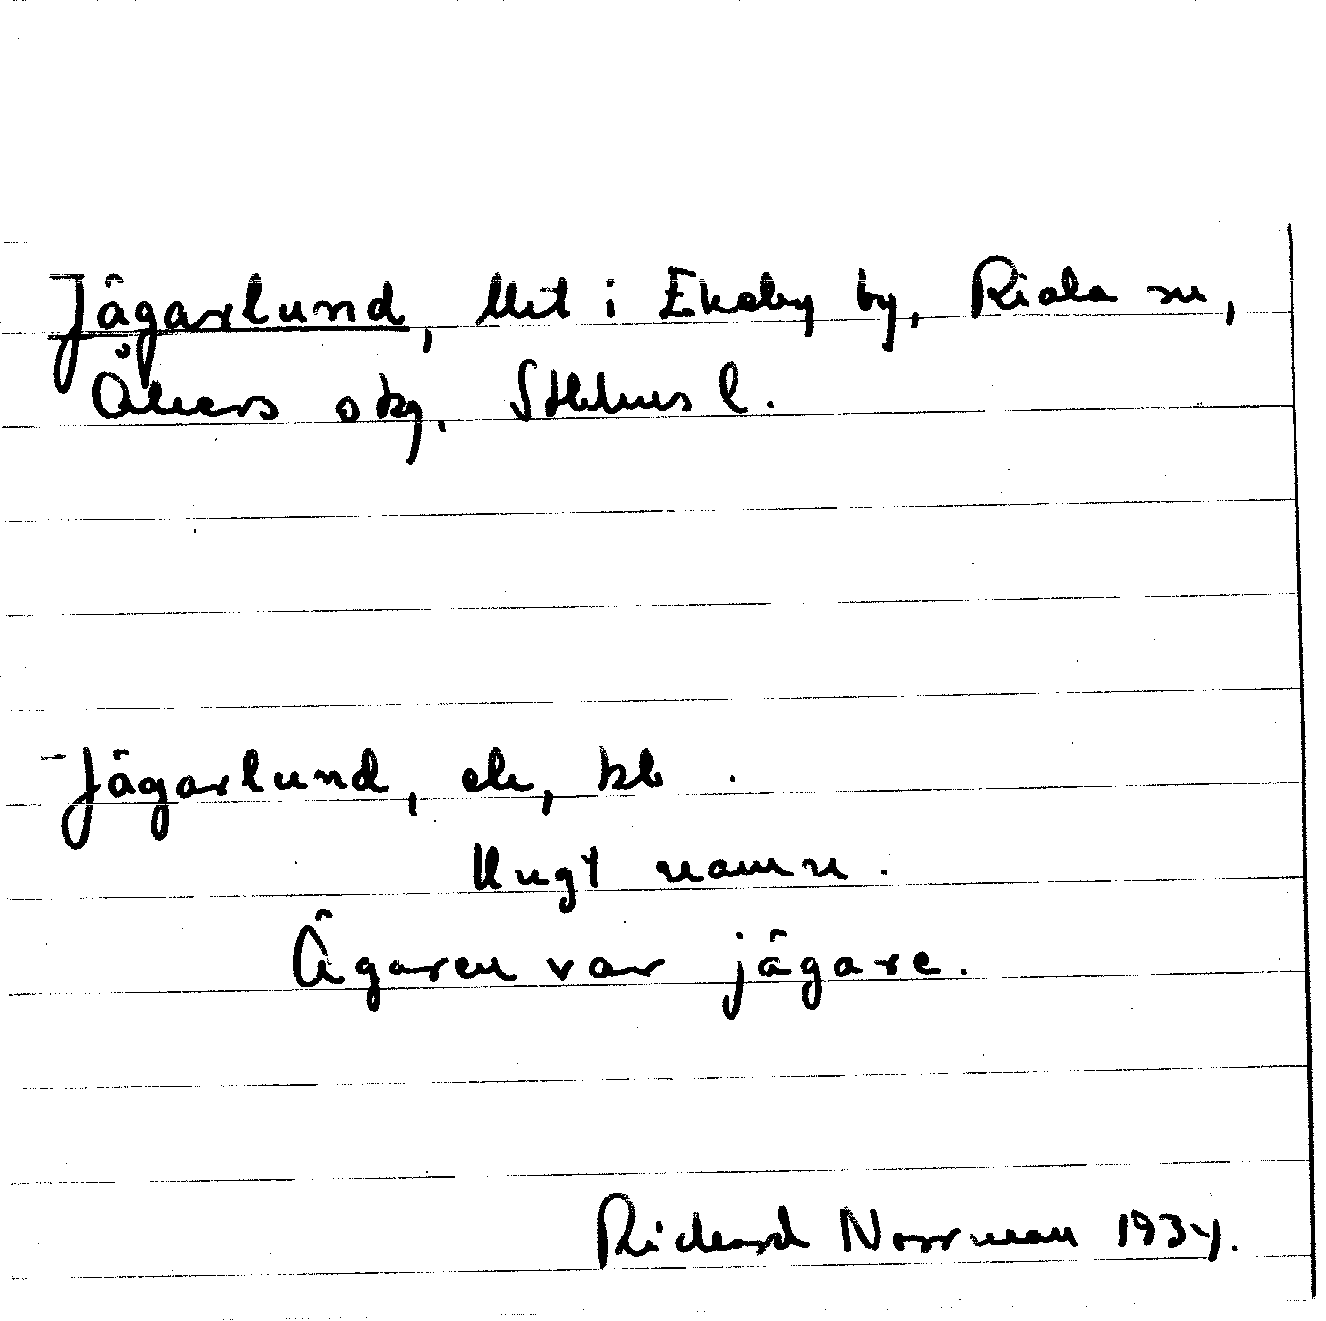 Jägarlund, lht i Ekeby by, Riala sn,
Åkers skg, Sthlms l.
Jägarlund,
Ungt namn.
Ägaren var jägare.
Rickard Norrman 1934.